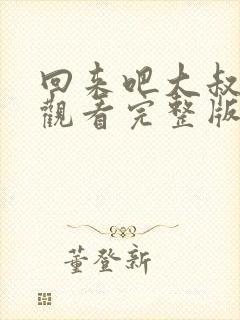 回来吧大叔
觀看完整版
董登新